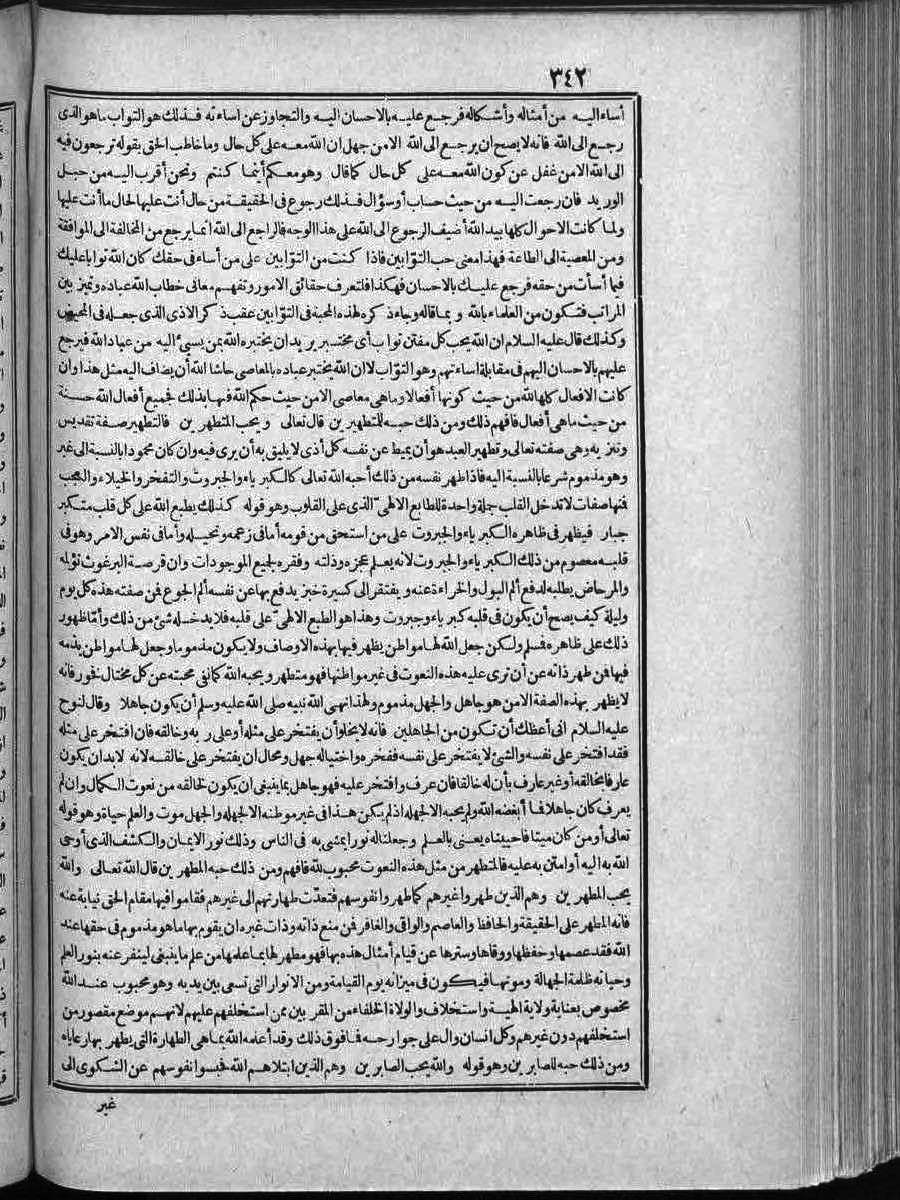 ٣٤٢
أساء اليه من أمثاله وأشكاله فرجع عليه بالاحسان اليه والتجاوز عن اساءته فذلك هو التواب ما هو الذى
رجع الى الله فانه لا يصح ان يرجع الى الله الا من جهل ان الله معه على كل حال وما خاطب الحق بقوله ترجعون فيه
الى الله الا من غفل عن كون الله معه على كل حال كما قال وهو معكم أينما كنتم ونحن أقرب اليه من حبل
الوريد فان رجعت اليه من حيث حساب أو سؤال فذلك رجوع فى الحقيقة من حال أنت عليها لحال ما أنت عليها
ولما كانت الاحوال كلها بيد الله أضيف الرجوع الى الله على هذا الوجه فالراجع الى الله انما يرجع من المخالفة الى الموافقة
ومن المعصية الى الطاعة فهذا معنى حب التوّابين فاذا كنت من التوّابين على من أساء فى حقك كان الله توابا عليك
فيما أسأت من حقه فرجع عليك بالاحسان فهكذا فلتعرف حقائق الامور وتفهم معانى خطاب الله عباده وتميز بين
المراتب فتكون من العلماء بالله وبما قاله وجاء ذكره لهذه المحبة فى التوّابين عقب ذكر الاذى الذى جعله فى المحيض
وكذلك قال عليه السلام ان الله يحب كل مفتن توّاب أى مختبر يريد ان يختبره الله بمن يسىء اليه من عباد الله فيرجع
عليهم بالاحسان اليهم فى مقابلة اساءتهم وهو التوّاب لا ان الله يختبر عباده بالمعاصى حاشا الله أن يضاف اليه مثل هذا وان
كانت الافعال كلها لله من حيث كونها أفعالا وما هى معاصى الا من حيث حكم الله فيها بذلك فجميع أفعال الله حسنة
من حيث ما هى أفعال فافهم ذلك ومن ذلك حبه للمتطهرين قال تعالى ويحب المتطهرين فالتطهير صفة تقديس
وتنزيه وهى صفته تعالى وتطهير العبد هو أن يميط عن نفسه كل أذى لا يليق به أن يرى فيه وان كان محمودا بالنسبة الى غيره
وهو مذموم شرعا بالنسبة اليه فاذا طهر نفسه من ذلك أحبه الله تعالى كالكبرياء والجبروت والتفخر والخيلاء والعجب
فمنها صفات لا تدخل القلب جملة واحدة للطابع الالهىّ الذى على القلوب وهو قوله كذلك يطبع الله على كل قلب متكبر
جبار فيظهر فى ظاهره الكبرياء والجبروت على من استحق من قومه أما فى زعمه وتخيله وأما فى نفس الامر وهو فى
قلبه معصوم من ذلك الكبرياء والجبروت لانه يعلم عجزه وذلته وفقره لجميع الموجودات وان قرصة البرغوث تؤلمه
والمرحاض يطلبه لدفع ألم البول والخراءة عنه ويفتقر الى كسيرة خبز يدفع بها عن نفسه ألم الجوع فمن صفته هذه كل يوم
وليلة كيف يصح أن يكون فى قلبه كبرياء وجبروت وهذا هو الطبع الالهىّ على قلبه فلا يدخله شئ من ذلك وأمّا ظهور
ذلك على ظاهره فسلم ولكن جعل الله لها مواطن يظهر فيها بهذه الاوصاف ولا يكون مذموما وجعل لها مواطن يذمه
فيها فمن طهر ذاته عن أن ترى عليه هذه النعوت فى غير مواطنها فهو متطهر ويحبه الله كما نفى محبته عن كل مختال فخور فانه
لا يظهر بهذه الصفة الا من هو جاهل والجهل مذموم ولهذا نهى الله نبيه صلى الله عليه وسلم أن يكون جاهلا وقال لنوح
عليه السلام انى أعظك أن تكون من الجاهلين فانه لا يخلو أن يفتخر على مثله أو على ربه وخالقه فان افتخر على مثله
فقد افتخر على نفسه والشئ لا يفتخر على نفسه ففخره واختياله جهل ومحال ان يفتخر على خالقه لانه لا بد ان يكون
عارفا بخالقه أو غير عارف بأن له خالقا فان عرف وافتخر عليه فهو جاهل بما ينبغى ان يكون لخالقه من نعوت الكمال وان لم
يعرف كان جاهلا فما أبغضه الله ولم يحبه الا لجهله اذ لم يكن هذا فى غير موطنه الا لجهله والجهل موت والعلم حياة وهو قوله
تعالى أو من كان ميتا فاحييناه يعنى بالعلم وجعلنا له نورا يمشى به فى الناس وذلك نور الايمان والكشف الذى أوحى
الله به اليه أو امتن به عليه فالمتطهر من مثل هذه النعوت محبوب لله فافهم ومن ذلك حبه المطهرين قال الله تعالى والله
يحب المطهرين وهم الذين طهروا غيرهم كما طهروا نفوسهم فتعدّت طهارتهم الى غيرهم فقاموا فيها مقام الحق نيابة عنه
فانه المطهر على الحقيقة والحافظ والعاصم والواقى والغافر فمن منع ذاته وذات غيره ان يقوم بها ما هو مذموم فى حقها عند
الله فقد عصمها وحفظها ووقاها وسترها عن قيام أمثال هذه بها فهو مطهر لها بما علمها من علم ما ينبغى لينفر عنه بنور العلم
وحياته ظلمة الجهالة وموتها فيكون فى ميزانه يوم القيامة ومن الانوار التى تسعى بين يديه وهو محبوب عند الله
مخصوص بعناية ولاية الهية واستخلاف والولاة الخلفاء من المقربين ممن استخلفهم عليهم لانهم موضع مقصور من
استخلفهم دون غيرهم وكل انسان وال على جوارحه فما فوق ذلك وقد أعلمه الله بما هى الطهارة التى يطهر بها رعاياه
ومن ذلك حبه للصابرين وهو قوله والله يحب الصابرين وهم الذين ابتلاهم الله فحبسوا نفوسهم عن الشكوى الى
غير